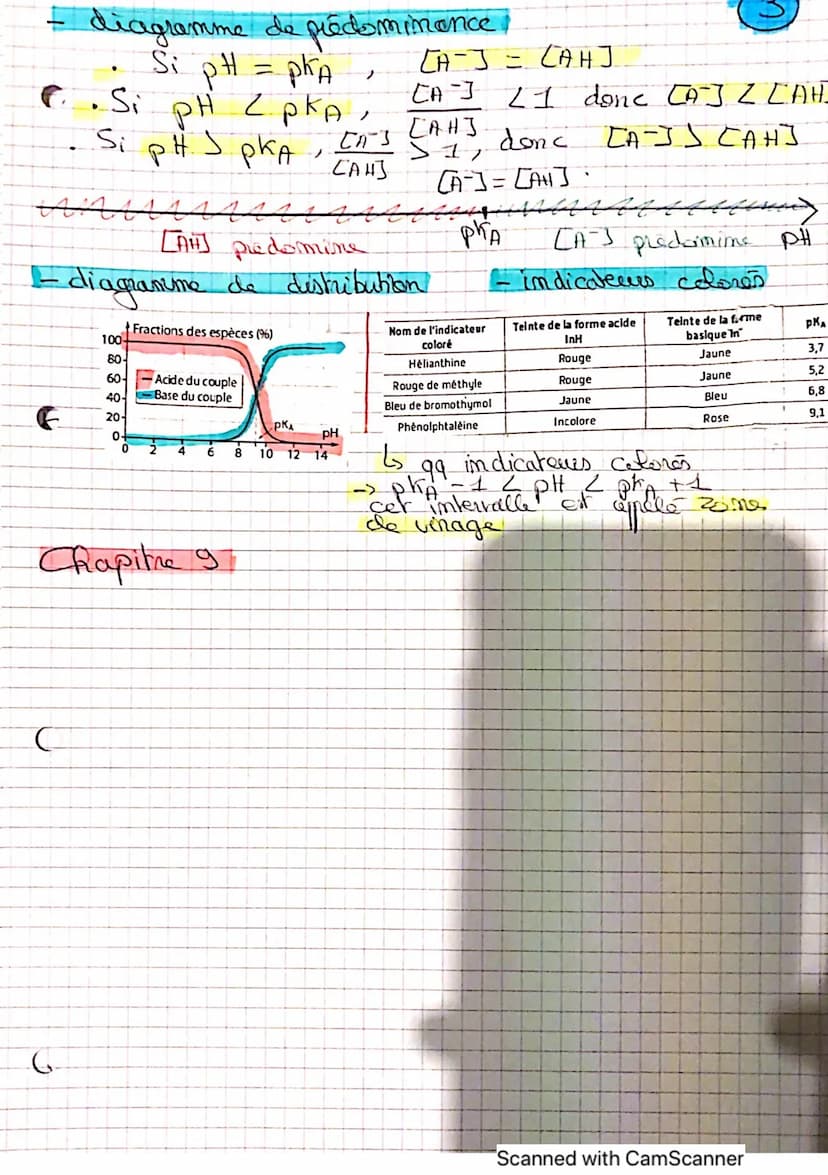 3
- diagramme de prédominance
. Si pH = pKA , [A-] = [AH]
. Si pH < pKA , [A-]/[AH] < 1 donc [A-] < [AH]
. Si pH > pKA , [A-]/[AH] > 1, donc [A-] > [AH]
[A-] = [AH] .
[AH] prédomine pKA [A-] prédomine pH
- diagramme de distribution
Fractions des espèces (%)
100
80
60
40
20
0
Acide du couple
Base du couple
pKA
pH
0 2 4 6 8 10 12 14
- indicateurs colorés
Nom de l'indicateur coloré Teinte de la forme acide InH Teinte de la forme basique In- pKA
Hélianthine Rouge Jaune 3,7
Rouge de méthyle Rouge Jaune 5,2
Bleu de bromothymol Jaune Bleu 6,8
Phénolphtaléine Incolore Rose 9,1
↳ qq indicateurs colorés
-> pKA - 1 < pH < pKA + 1
cet intervalle est appelé zone
de virage
Chapitre 9
Scanned with CamScanner